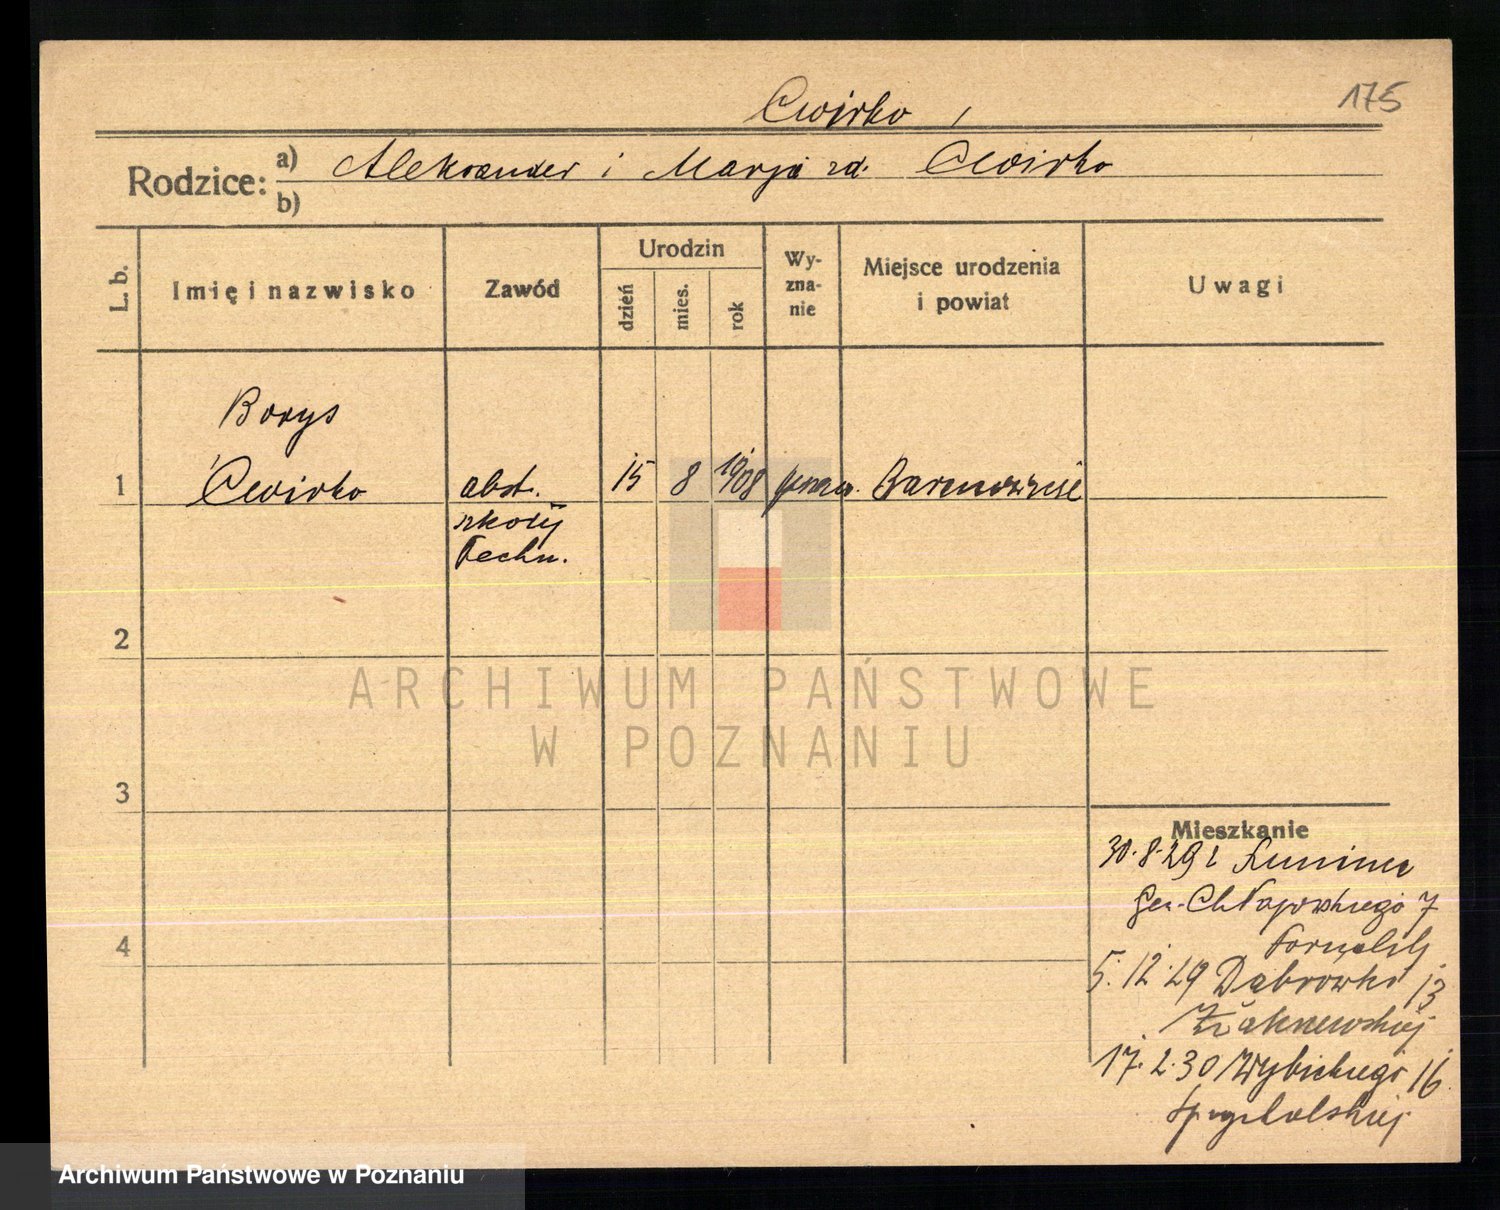 Cwirko
175
Rodzice: a) Aleksander i Marja zd. Cwirko
b)
L. b.
Imię i nazwisko
Zawód
Urodzin
dzień
mies.
rok
Wy-
zna-
nie
Miejsce urodzenia
i powiat
Uwagi
Borys
1 Cwirko abst. 15 8 1908 praw.
szkoły
Techn.
2
3
4
Mieszkanie
30.8.29 z
Gen. Chłapowskiego 7
5.12.29 Dąbrówki 13
17.2.30 Wybickiego 16
ARCHIWUM PAŃSTWOWE
W POZNANIU
Archiwum Państwowe w Poznaniu